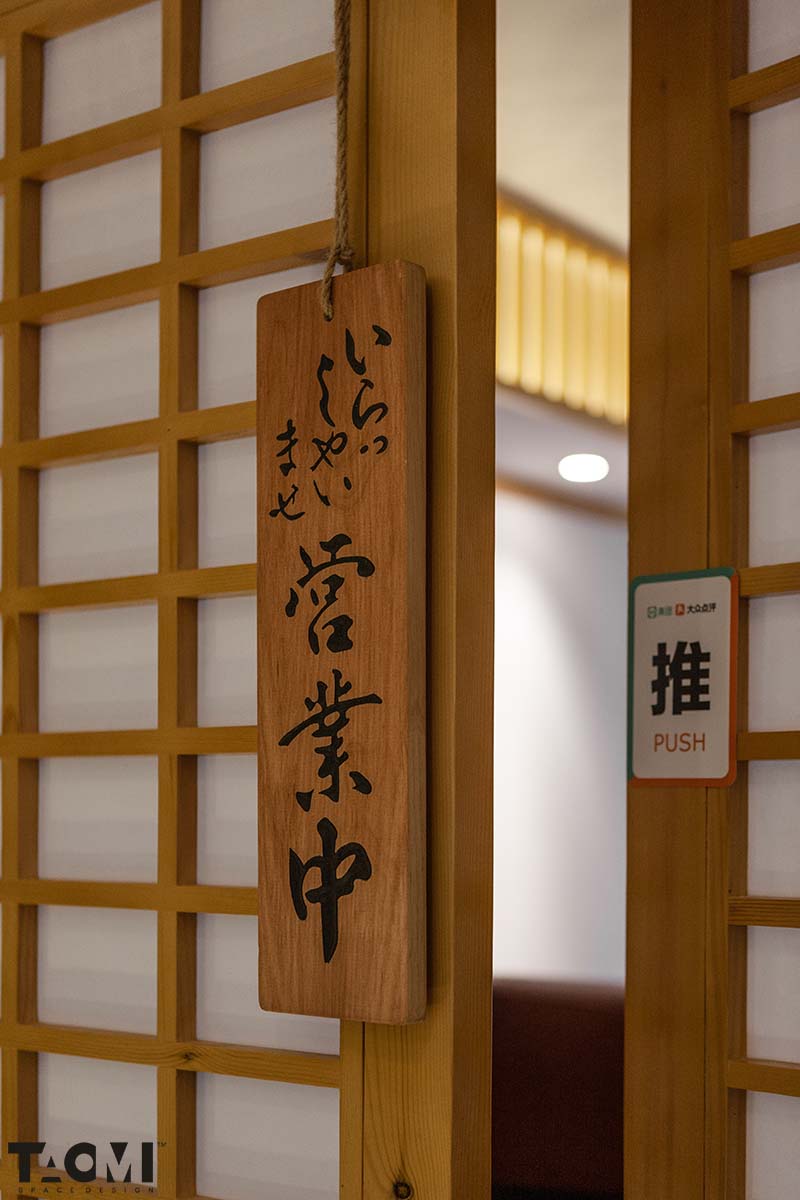 いらっ
しゃい
ませ
営業中
美団 大众点评
推
PUSH
TAOMI™
SPACE DESIGN